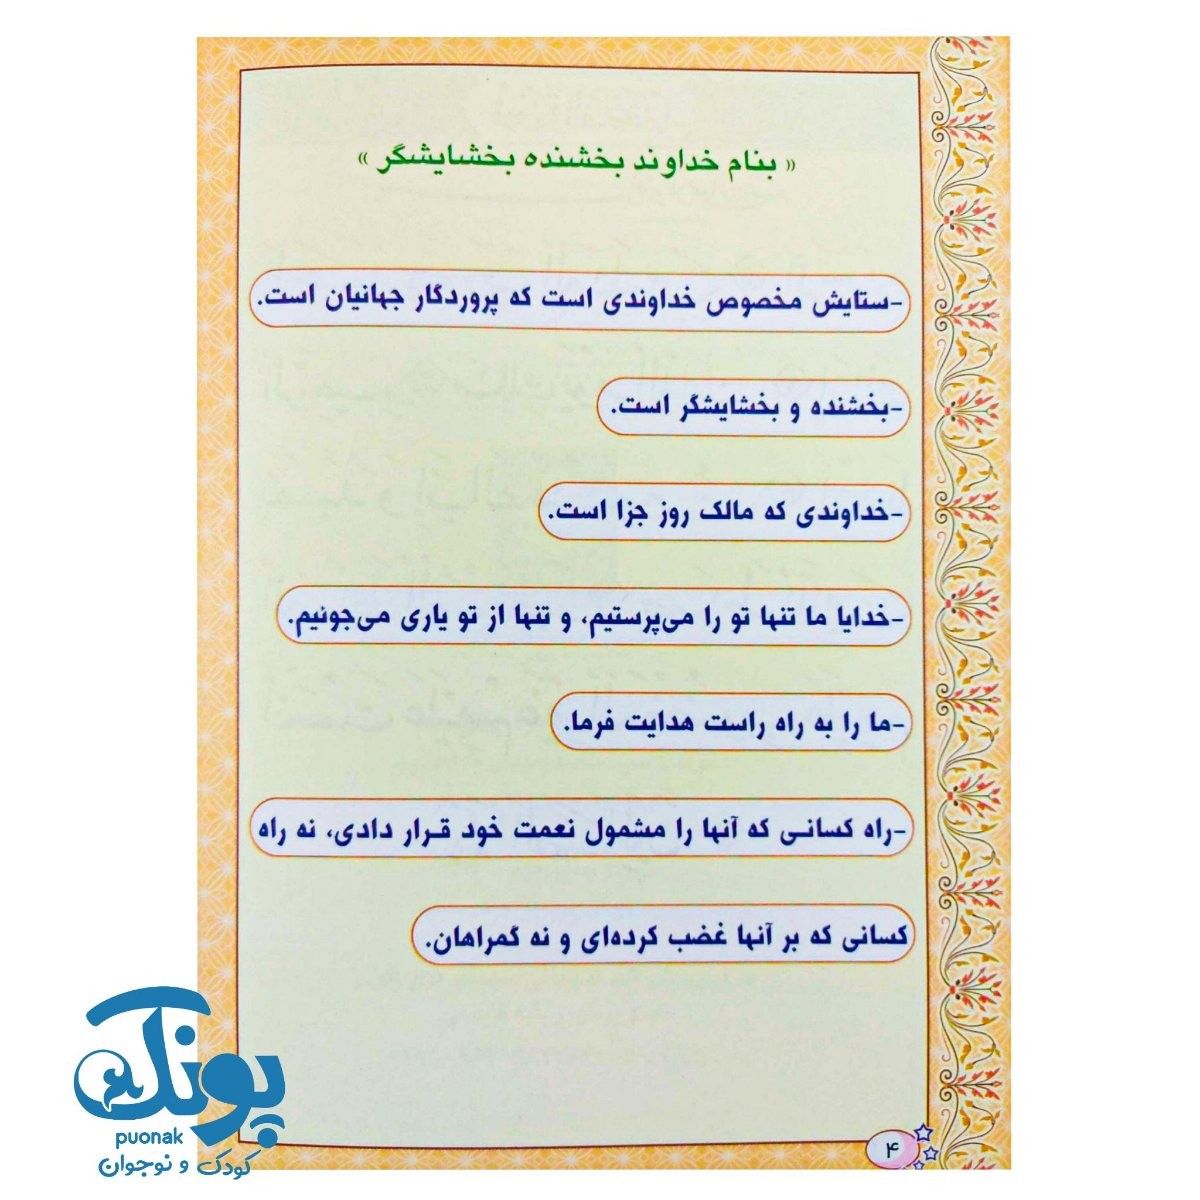 « بنام خداوند بخشنده بخشایشگر »
-ستایش مخصوص خداوندی است که پروردگار جهانیان است.
-بخشنده و بخشایشگر است.
-خداوندی که مالک روز جزا است.
-خدایا ما تنها تو را می‌پرستیم، و تنها از تو یاری می‌جوئیم.
-ما را به راه راست هدایت فرما.
-راه کسانی که آنها را مشمول نعمت خود قرار دادی، نه راه
کسانی که بر آنها غضب کرده‌ای و نه گمراهان.
۴
پونک
puonak
کودک و نوجوان